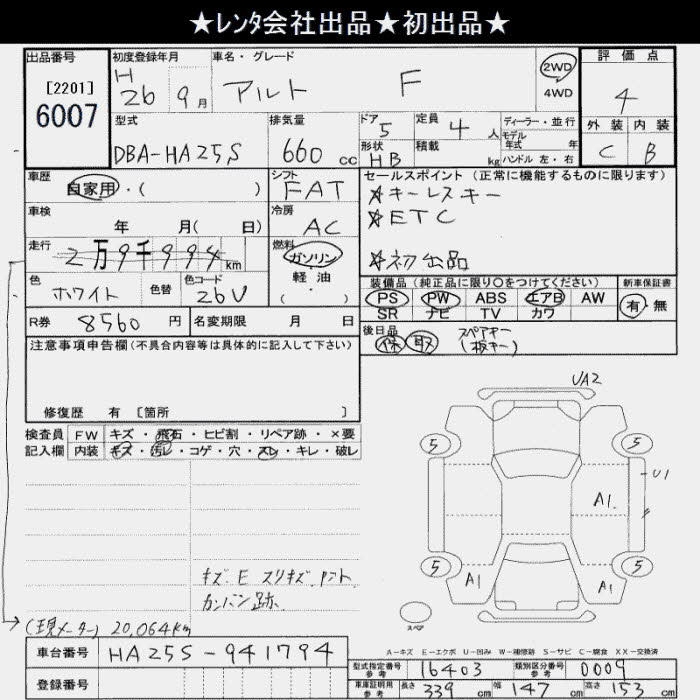 ★レンタ会社出品★初出品★
出品番号 初度登録年月 車名・グレード 評価点
[2201] H 26 9月 アルト F 2WD 4
6007 4WD
型式 排気量 ドア 定員 ディーラー・並行 外装 内装
DBA-HA25S 660cc 5 4人 モデル年式 年 C B
形状 積載 ハンドル 左・右
HB kg
車歴 シフト セールスポイント(正常に機能するものに限ります)
自家用・( ) FAT ☆キーレスキー
車検 冷房 ☆ETC
年 月( 日) AC ☆初出品
走行 燃料
2万9千994km ガソリン
色 色替 色コード 軽油・ 装備品(純正品に限り○をつけてください) 新車保証書
ホワイト 26U ( ) PS PW ABS エアB AW 有・無
SR ナビ TV カワ
R券 8560円 名変期限 月 日 後日品 スペアキー
保 取 (板キー)
注意事項申告欄(不具合内容等は具体的に記入して下さい)
修復歴 有 [箇所 ]
検査員 FW キズ・飛石・ヒビ割・リペア跡・×要
記入欄 内装 キズ・汚レ・コゲ・穴・スレ・キレ・破レ
UA2
5 5
U1
A1
5 5
A1 A1
スペア
キズ E スリキズ
カンバン跡
(現メーター) 20,064km
A-キズ E-エクボ U-凹み W-補修跡 S-サビ C-腐食 XX-交換済
車台番号 HA25S-941794
型式指定番号 参考 16403 類別区分番号 参考 0009
登録番号 車庫証明用 参考 長さ 339cm 幅 147cm 高さ 153cm